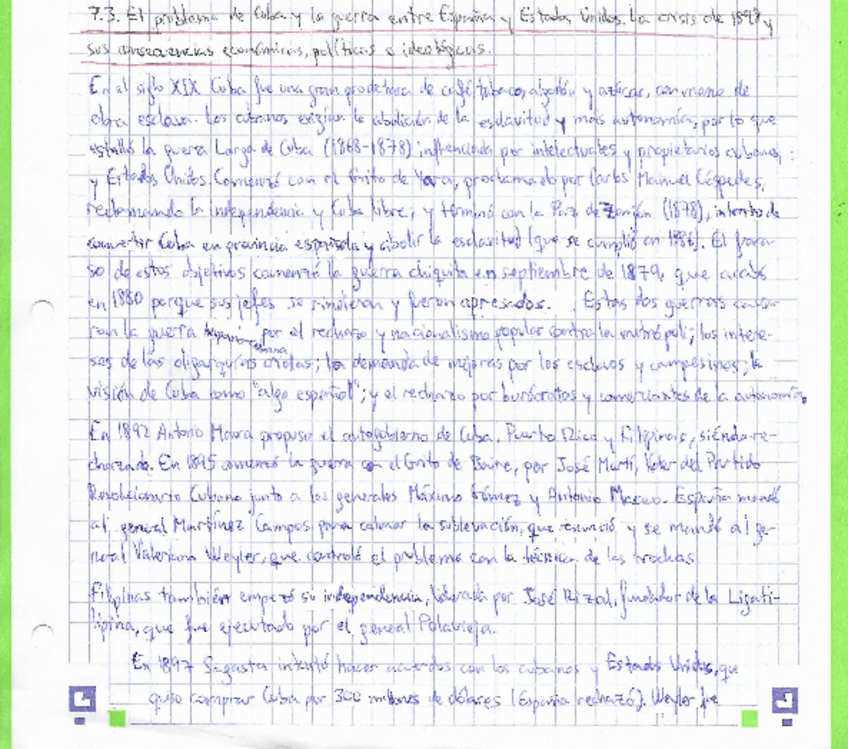 7.3. El problema de Cuba y la guerra entre España y Estados Unidos. La crisis de 1898 y
sus consecuencias económicas, políticas e ideológicas.
En el siglo XIX Cuba fue una gran productora de café, tabaco, algodón y azúcar, con mano de
obra esclava. Los cubanos exigían la abolición de la esclavitud y más autonomía, por lo que
estalló la guerra Larga de Cuba (1868-1878) influenciada por intelectuales y propietarios cubanos,
y Estados Unidos. Comenzó con el Grito de Yara, proclamado por Carlos Manuel Céspedes,
reclamando la independencia y Cuba libre, y terminó con la Paz de Zanjón (1878), intento de
convertir Cuba en provincia española y abolir la esclavitud (que se cumplió en 1886). El fraca-
so de estos objetivos comenzó la guerra chiquita en septiembre de 1879, que acabó
en 1880 porque sus jefes se rindieron y fueron apresados. Estas dos guerras causa-
ron la guerra hispano-cubana por el rechazo y nacionalismo popular contra la metrópoli; los intere-
ses de las oligarquías criollas; la demanda de mejoras por los esclavos y campesinos; la
visión de Cuba como "algo español"; y el rechazo por burócratas y comerciantes de la autonomía.
En 1892 Antonio Maura propuso el autogobierno de Cuba, Puerto Rico y Filipinas, siendo re-
chazado. En 1895 comenzó la guerra con el Grito de Baire, por José Martí, líder del Partido
Revolucionario Cubano junto a los generales Máximo Gómez y Antonio Maceo. España mandó
al general Martínez Campos para calmar la sublevación, que renunció y se mandó al ge-
neral Valeriano Weyler, que controló el problema con la técnica de las trochas.
Filipinas también empezó su independencia, liderada por José Rizal, fundador de la Liga fi-
lipina, que fue ejecutado por el general Polavieja.
En 1897 Sagasta intentó hacer acuerdos con los cubanos y Estados Unidos, que
quiso comprar Cuba por 300 millones de dólares (España rechazó). Weyler fue